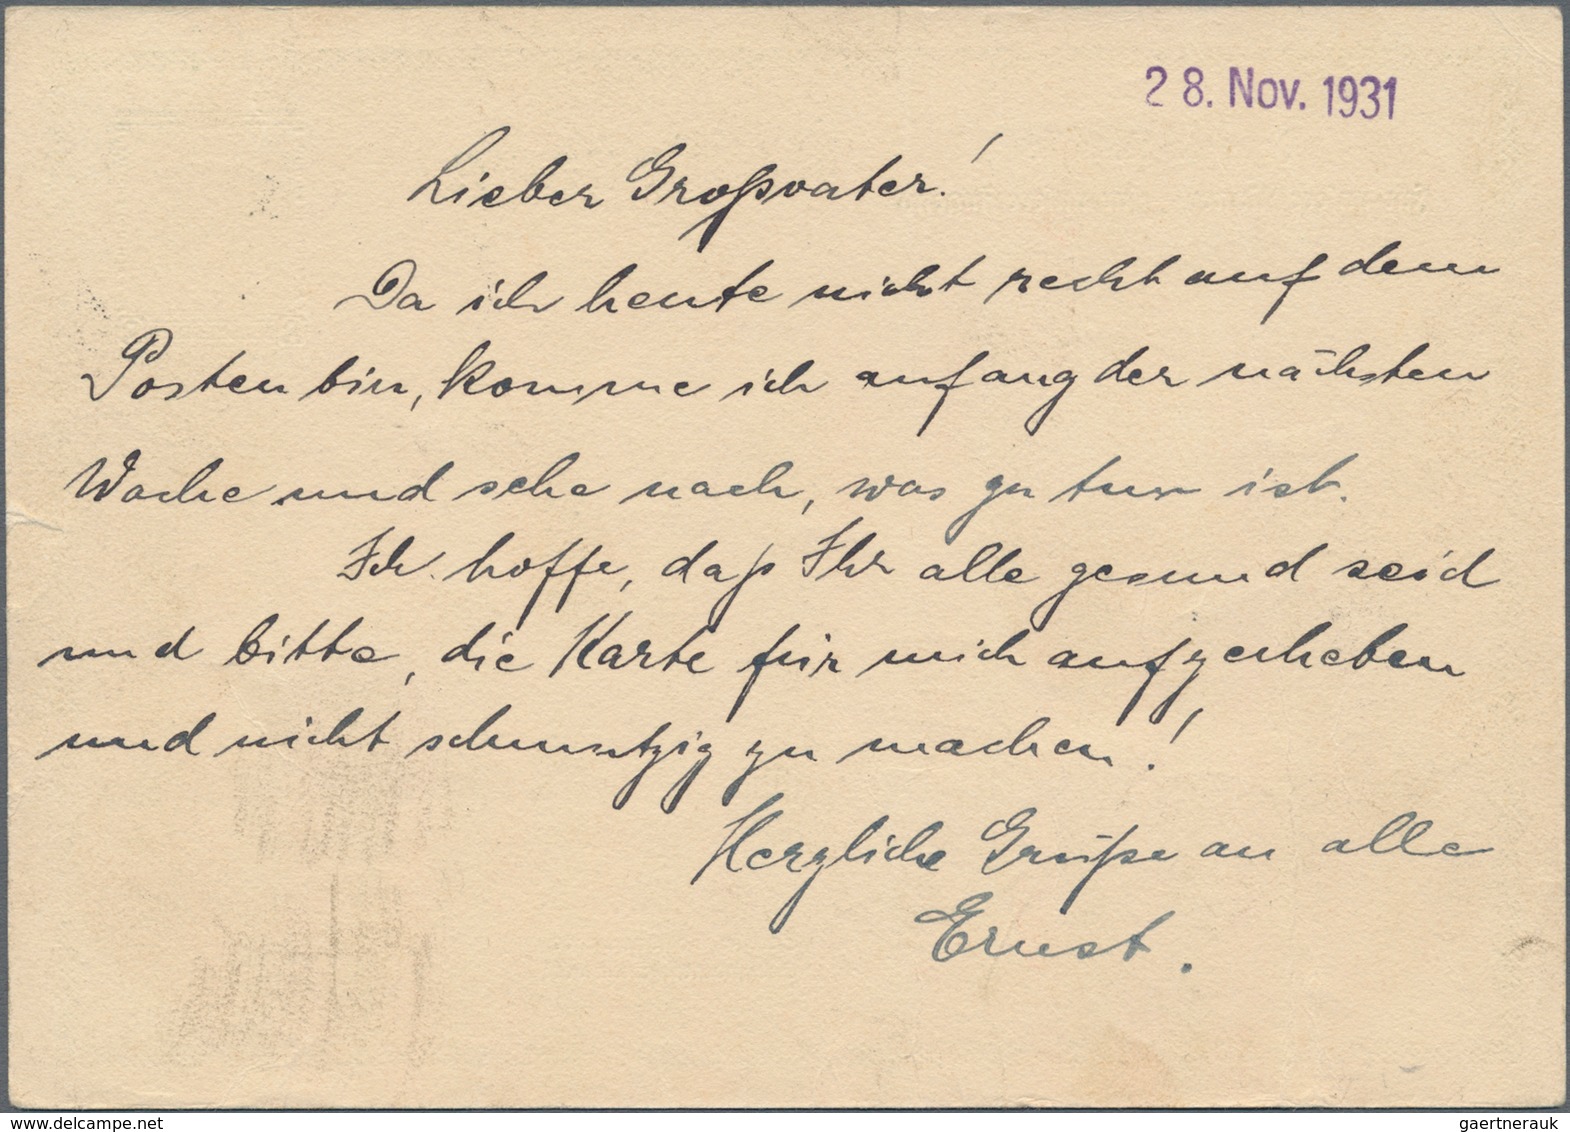 28. Nov. 1931
Lieber Großvater!
Da ich heute nicht recht auf dem
Posten bin, komme ich anfang der nächsten
Woche und sehe nach, was zu tun ist.
Ich hoffe, daß Ihr alle gesund seid
und bitte, die Karte für mich aufzuheben
und nicht schmutzig zu machen!
Herzliche Grüße an alle
Ernst.
www.delcampe.net
gaertnerauk